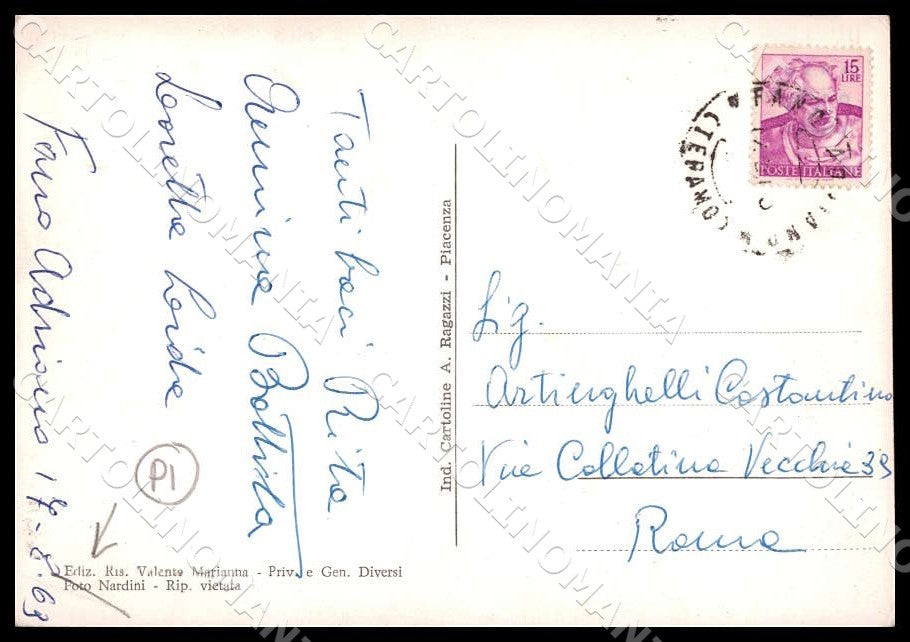 Tanti baci Rita
Nennina Battista
Loretta Loide
Fano Adriano 17-8-63
P1
Ediz. Ris. Valente Marianna - Priv. e Gen. Diversi
Foto Nardini - Rip. vietata
Ind. Cartoline A. Ragazzi - Piacenza
15
LIRE
POSTE ITALIANE
FANO ADRIANO (TERAMO)
Sig.
Artinghelli Costantino
Via Collatina Vecchia 33
Roma
CARTOLINOMANIA